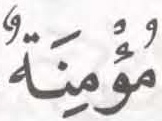 مُؤْمِنَةٌ